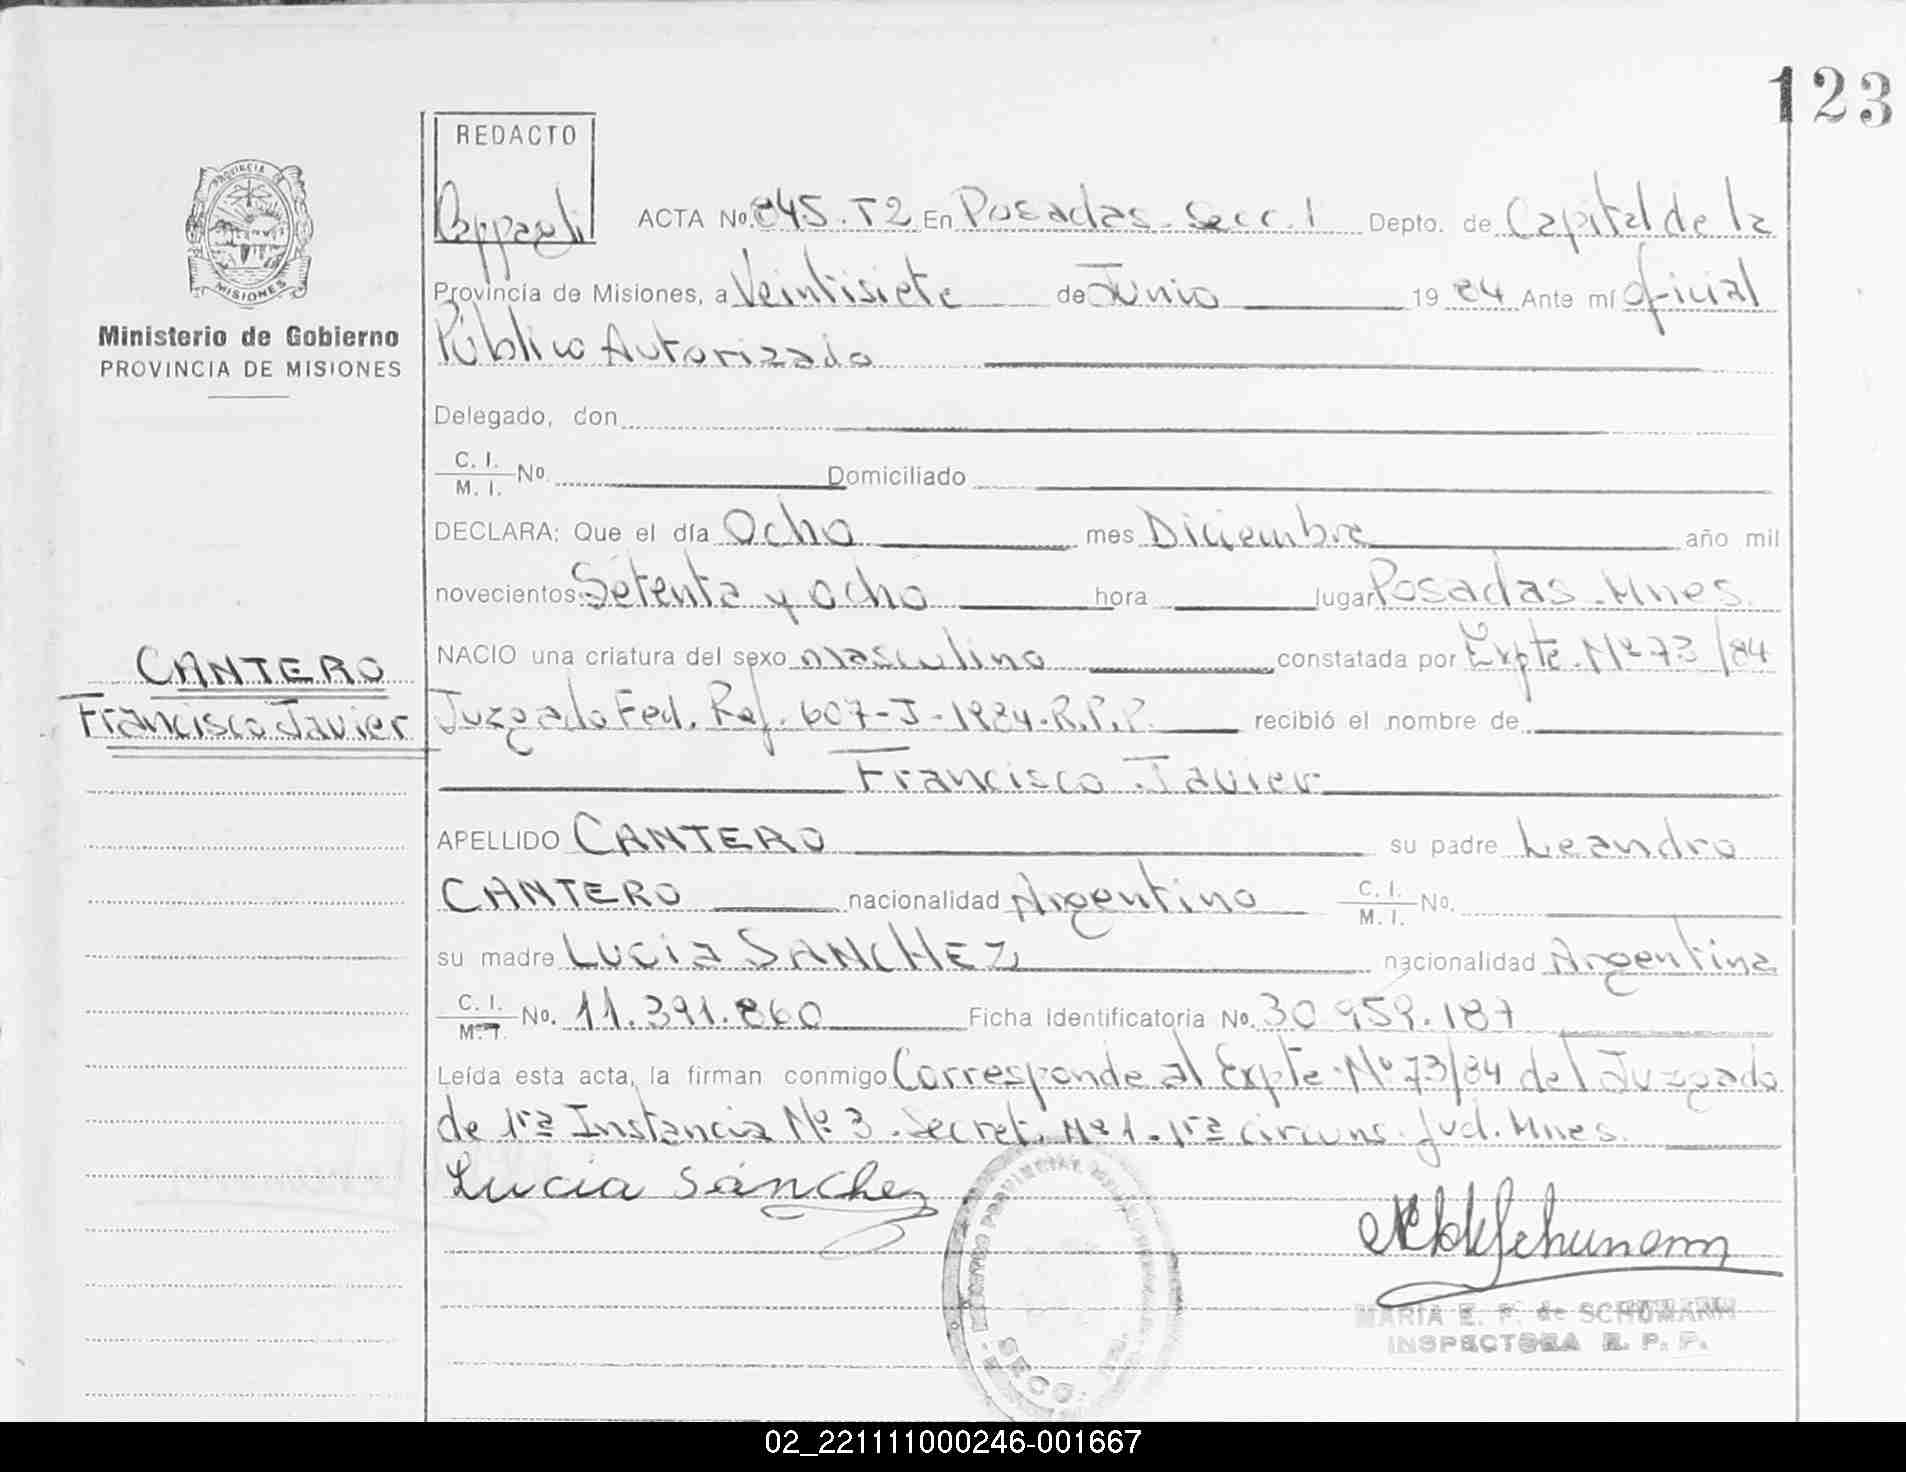 123
REDACTO
PROVINCIA DE
MISIONES
Ministerio de Gobierno
PROVINCIA DE MISIONES
ACTA No. 845. T2 En Posadas. Secc. 1 Depto. de Capital de la
Provincia de Misiones, a Veintisiete de Junio 1984 Ante mí Oficial
Público Autorizado
Delegado, don
C. I. / M. I. No. Domiciliado
DECLARA: Que el día Ocho mes Diciembre año mil
novecientos Setenta y ocho hora lugar Posadas. Mnes.
NACIO una criatura del sexo masculino constatada por Expte. Nº 73/84
CANTERO
Francisco Javier
Juzgado Fed. Ref. 607-J-1984-R.P.P. recibió el nombre de
Francisco Javier
APELLIDO CANTERO su padre Leandro
CANTERO nacionalidad Argentino C. I. / M. I. No.
su madre Lucia SANCHEZ nacionalidad Argentina
C. I. / M. I. No. 11.391.860 Ficha Identificatoria No. 30 959.187
Leída esta acta, la firman conmigo Corresponde al Expte. Nº 73/84 del Juzgado
de 1ra Instancia Nº 3. Secret. Nº 1. 1ra Circuns. Jud. Mnes.
Lucia Sánchez
Schumann
MARIA E. F. de SCHUMANN
INSPECTORA R. P. P.
SECC.
02_221111000246-001667